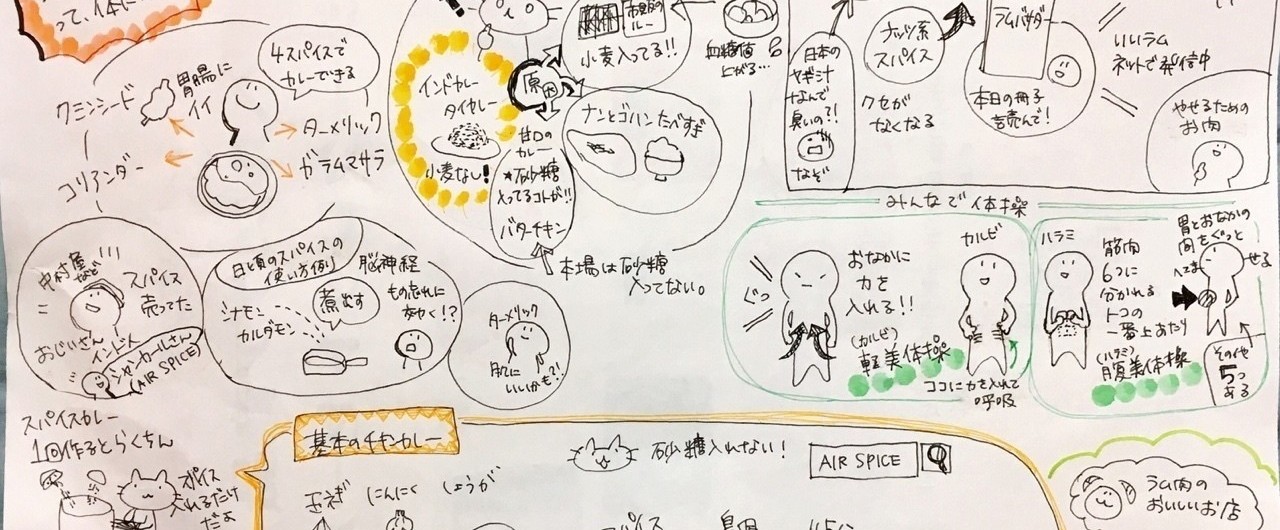 って、体に
4スパイスで
カレーできる
胃腸に
イイ
クミンシード
ターメリック
コリアンダー
ガラムマサラ
インドカレー
タイカレー
小麦なし!
原因
市販の
ルー
小麦入ってる!!
血糖値
上がる…
ナンとゴハンたべすぎ
甘口の
カレー
★砂糖
入ってるコトが!!
バターチキン
本場は砂糖
入ってない。
日本の
ヤギ汁
なんで
臭いの?!
なぞ
ナッツ系
スパイス
クセが
なくなる
ラムバサダー
本日の冊子
読んで!
いいラム
ネットで発信中
やせるための
お肉
みんなで体操
中村屋
など
スパイス
売ってた
おじいさん
インド人
シャンカールさん
(AIR SPICE)
日頃のスパイスの
使い方例
シナモン
カルダモン
煮出す
脳神経
もの忘れに
効く!?
ターメリック
肌に
いいかも?!
ぐっ
おなかに
力を
入れる!!
(カルビ)
軽美体操
カルビ
ココに力を入れて
呼吸
ハラミ
筋肉
6つに
分かれる
トコの
一番上あたり
(ハラミ)
腹美体操
胃とおなかの
肉をぐっと
へこませる
その他
5つ
ある
スパイスカレー
1回作るとらくちん
ポイス
入れるだけ
だよ
基本のチキンカレー
砂糖入れない!
AIR SPICE
玉ネギ
にんにく
しょうが
ラム肉の
おいしいお店